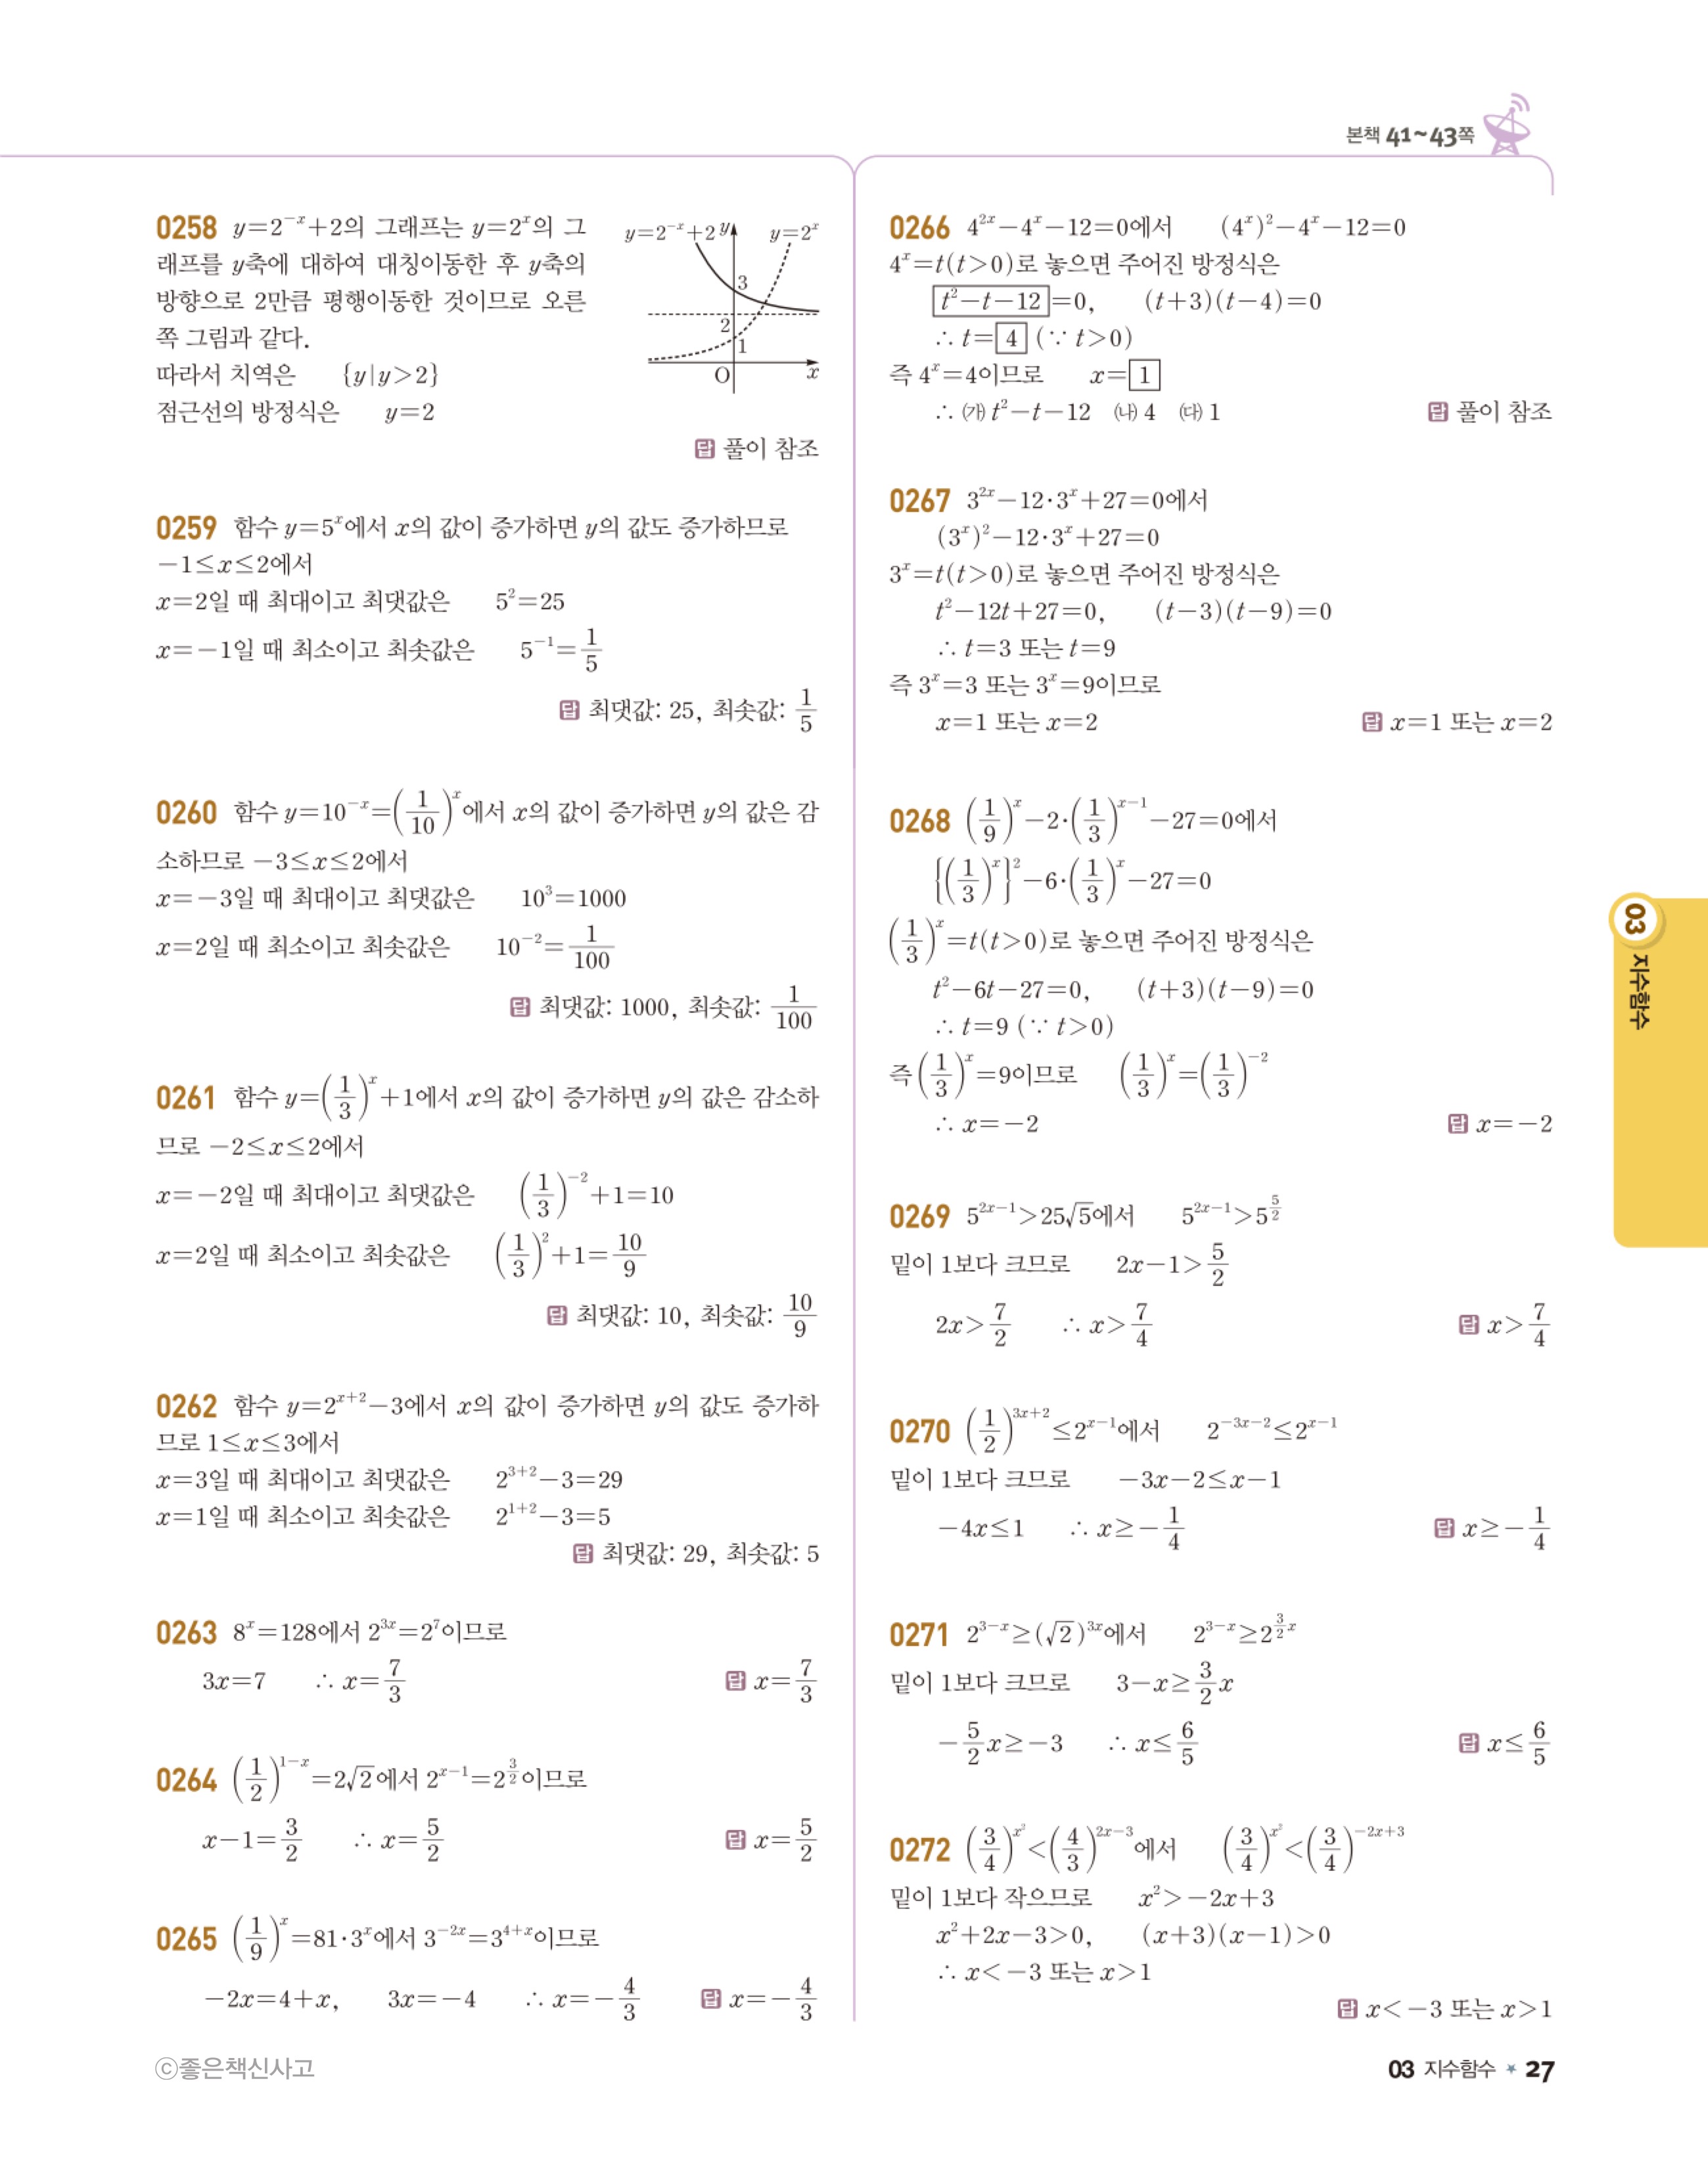 본책 41~43쪽
0258 y=2^{-x}+2의 그래프는 y=2^x의 그
래프를 y축에 대하여 대칭이동한 후 y축의
방향으로 2만큼 평행이동한 것이므로 오른
쪽 그림과 같다.
따라서 치역은 {y|y>2}
점근선의 방정식은 y=2
y=2^{-x}+2 y y=2^x
3
2
1
O x
답 풀이 참조
0259 함수 y=5^x에서 x의 값이 증가하면 y의 값도 증가하므로
-1≤x≤2에서
x=2일 때 최대이고 최댓값은 5^2=25
x=-1일 때 최소이고 최솟값은 5^{-1}=1/5
답 최댓값: 25, 최솟값: 1/5
0260 함수 y=10^{-x}=(1/10)^x에서 x의 값이 증가하면 y의 값은 감
소하므로 -3≤x≤2에서
x=-3일 때 최대이고 최댓값은 10^3=1000
x=2일 때 최소이고 최솟값은 10^{-2}=1/100
답 최댓값: 1000, 최솟값: 1/100
0261 함수 y=(1/3)^x+1에서 x의 값이 증가하면 y의 값은 감소하
므로 -2≤x≤2에서
x=-2일 때 최대이고 최댓값은 (1/3)^{-2}+1=10
x=2일 때 최소이고 최솟값은 (1/3)^2+1=10/9
답 최댓값: 10, 최솟값: 10/9
0262 함수 y=2^{x+2}-3에서 x의 값이 증가하면 y의 값도 증가하
므로 1≤x≤3에서
x=3일 때 최대이고 최댓값은 2^{3+2}-3=29
x=1일 때 최소이고 최솟값은 2^{1+2}-3=5
답 최댓값: 29, 최솟값: 5
0263 8^x=128에서 2^{3x}=2^7이므로
3x=7 ∴ x=7/3 답 x=7/3
0264 (1/2)^{1-x}=2√2에서 2^{x-1}=2^{3/2}이므로
x-1=3/2 ∴ x=5/2 답 x=5/2
0265 (1/9)^x=81·3^x에서 3^{-2x}=3^{4+x}이므로
-2x=4+x, 3x=-4 ∴ x=-4/3 답 x=-4/3
0266 4^{2x}-4^x-12=0에서 (4^x)^2-4^x-12=0
4^x=t(t>0)로 놓으면 주어진 방정식은
t^2-t-12=0, (t+3)(t-4)=0
∴ t=4 (∵ t>0)
즉 4^x=4이므로 x=1
∴ ㈎ t^2-t-12 ㈏ 4 ㈐ 1 답 풀이 참조
0267 3^{2x}-12·3^x+27=0에서
(3^x)^2-12·3^x+27=0
3^x=t(t>0)로 놓으면 주어진 방정식은
t^2-12t+27=0, (t-3)(t-9)=0
∴ t=3 또는 t=9
즉 3^x=3 또는 3^x=9이므로
x=1 또는 x=2 답 x=1 또는 x=2
0268 (1/9)^x-2·(1/3)^{x-1}-27=0에서
{(1/3)^x}^2-6·(1/3)^x-27=0
(1/3)^x=t(t>0)로 놓으면 주어진 방정식은
t^2-6t-27=0, (t+3)(t-9)=0
∴ t=9 (∵ t>0)
즉 (1/3)^x=9이므로 (1/3)^x=(1/3)^{-2}
∴ x=-2 답 x=-2
0269 5^{2x-1}>25√5에서 5^{2x-1}>5^{5/2}
밑이 1보다 크므로 2x-1>5/2
2x>7/2 ∴ x>7/4 답 x>7/4
0270 (1/2)^{3x+2}≤2^{x-1}에서 2^{-3x-2}≤2^{x-1}
밑이 1보다 크므로 -3x-2≤x-1
-4x≤1 ∴ x≥-1/4 답 x≥-1/4
0271 2^{3-x}≥(√2)^{3x}에서 2^{3-x}≥2^{3/2 x}
밑이 1보다 크므로 3-x≥3/2 x
-5/2 x≥-3 ∴ x≤6/5 답 x≤6/5
0272 (3/4)^{x^2}<(4/3)^{2x-3}에서 (3/4)^{x^2}<(3/4)^{-2x+3}
밑이 1보다 작으므로 x^2>-2x+3
x^2+2x-3>0, (x+3)(x-1)>0
∴ x<-3 또는 x>1
답 x<-3 또는 x>1
03 지수함수
ⓒ좋은책신사고
03 지수함수 ★ 27